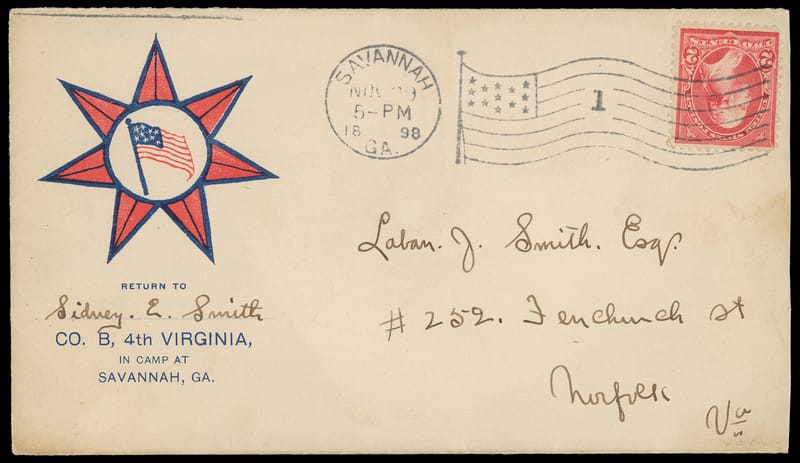 SAVANNAH
NOV 29
5-PM
18 98
GA.
1
2 2
RETURN TO
Sidney. E. Smith
CO. B, 4th VIRGINIA,
IN CAMP AT
SAVANNAH, GA.
Laban. J. Smith. Esq.
# 252. Fenchurch st
Norfolk
Va